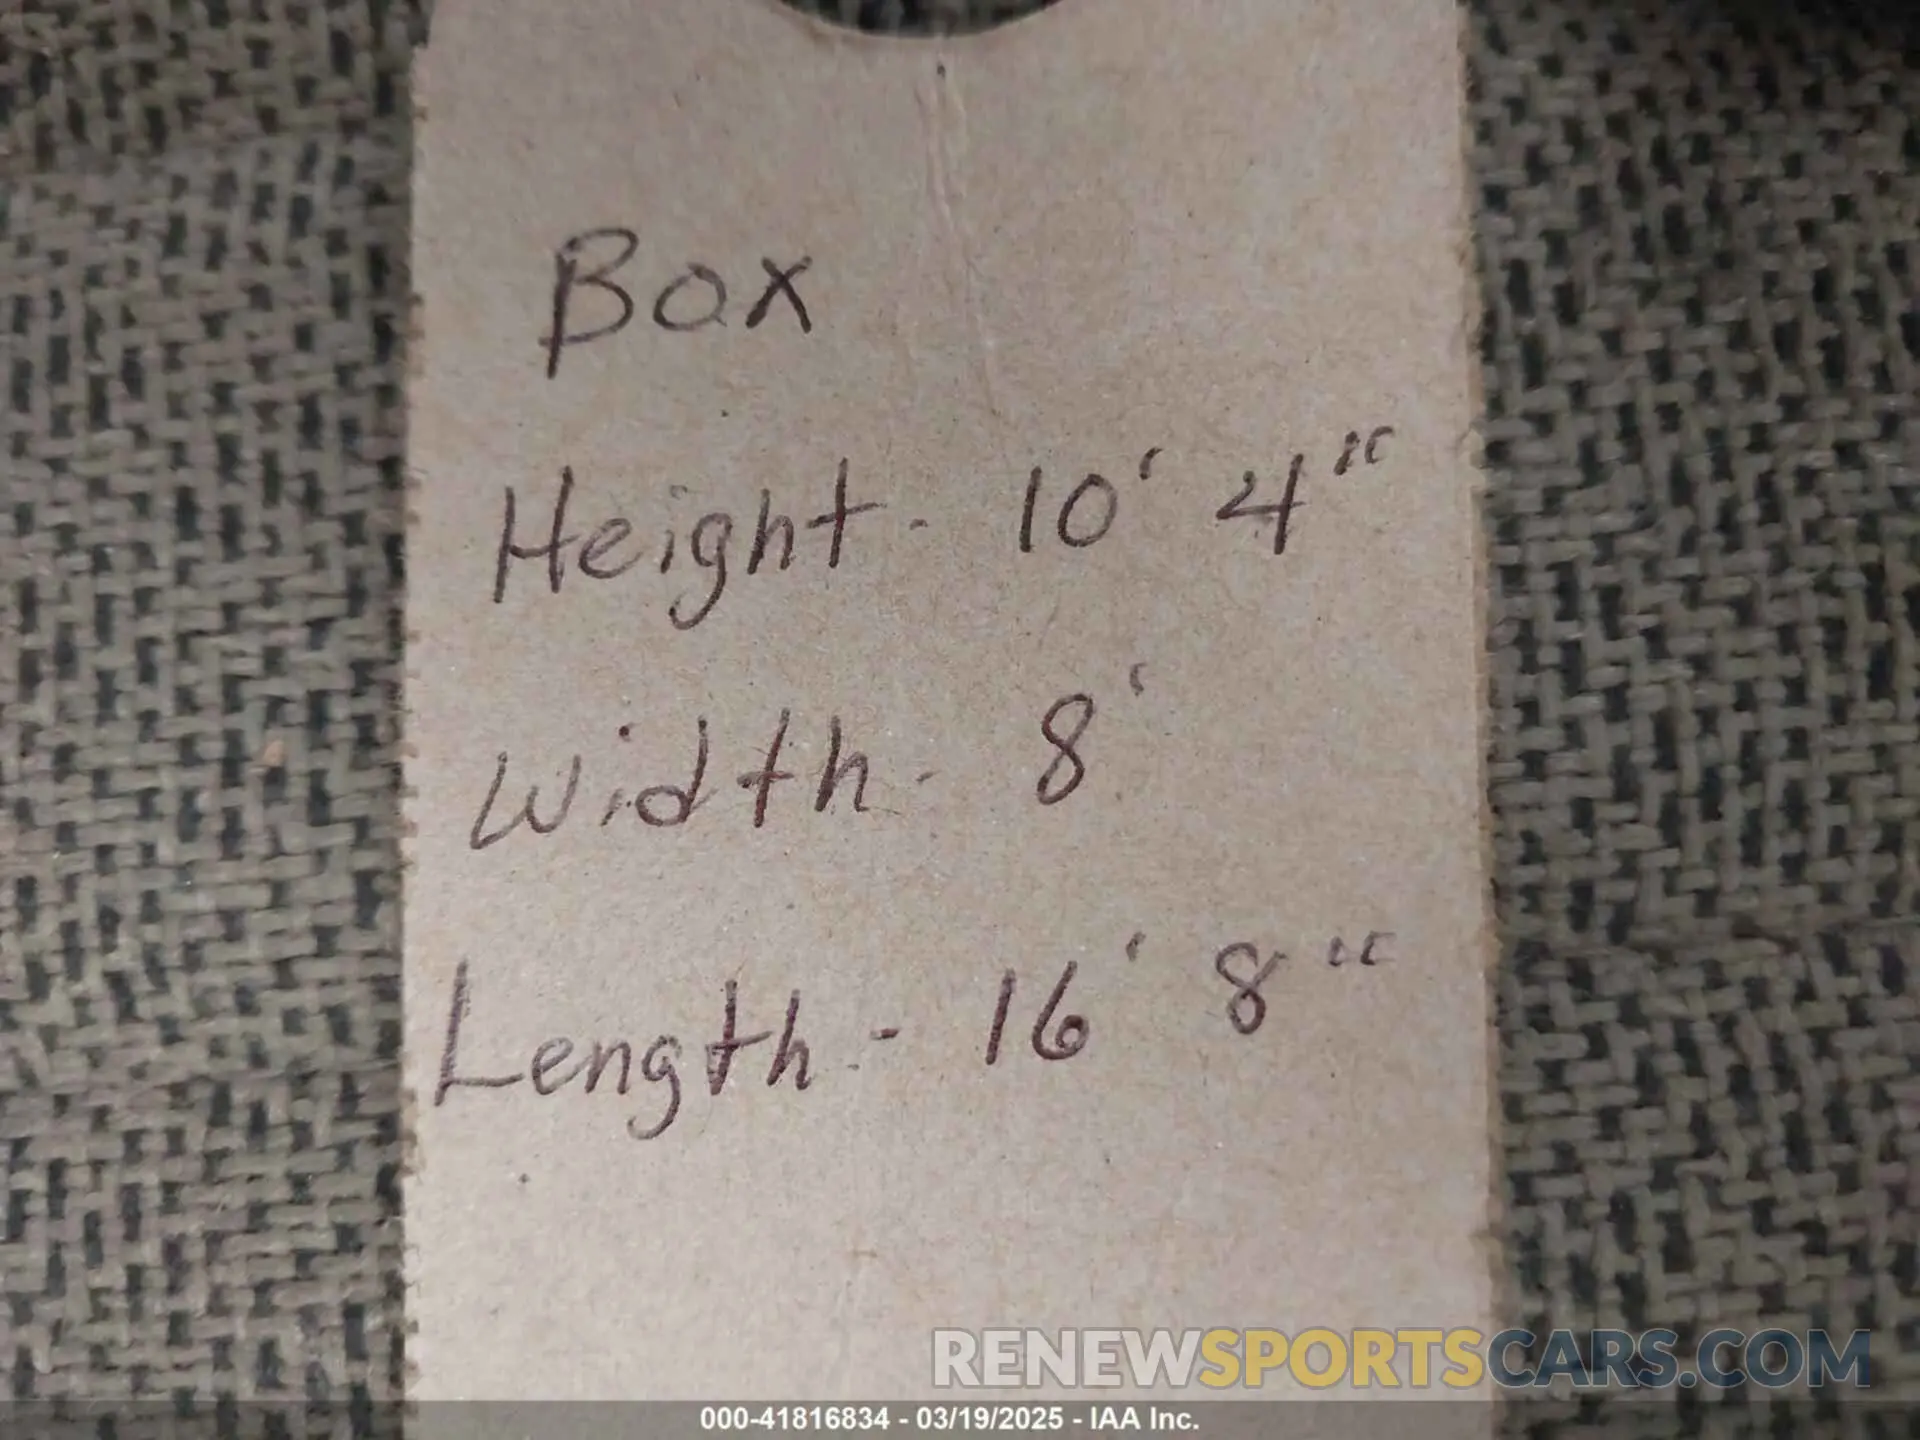 Box
Height - 10' 4"
Width - 8'
Length - 16' 8"
RENEWSPORTSCARS.COM
000-41816834 - 03/19/2025 - IAA Inc.